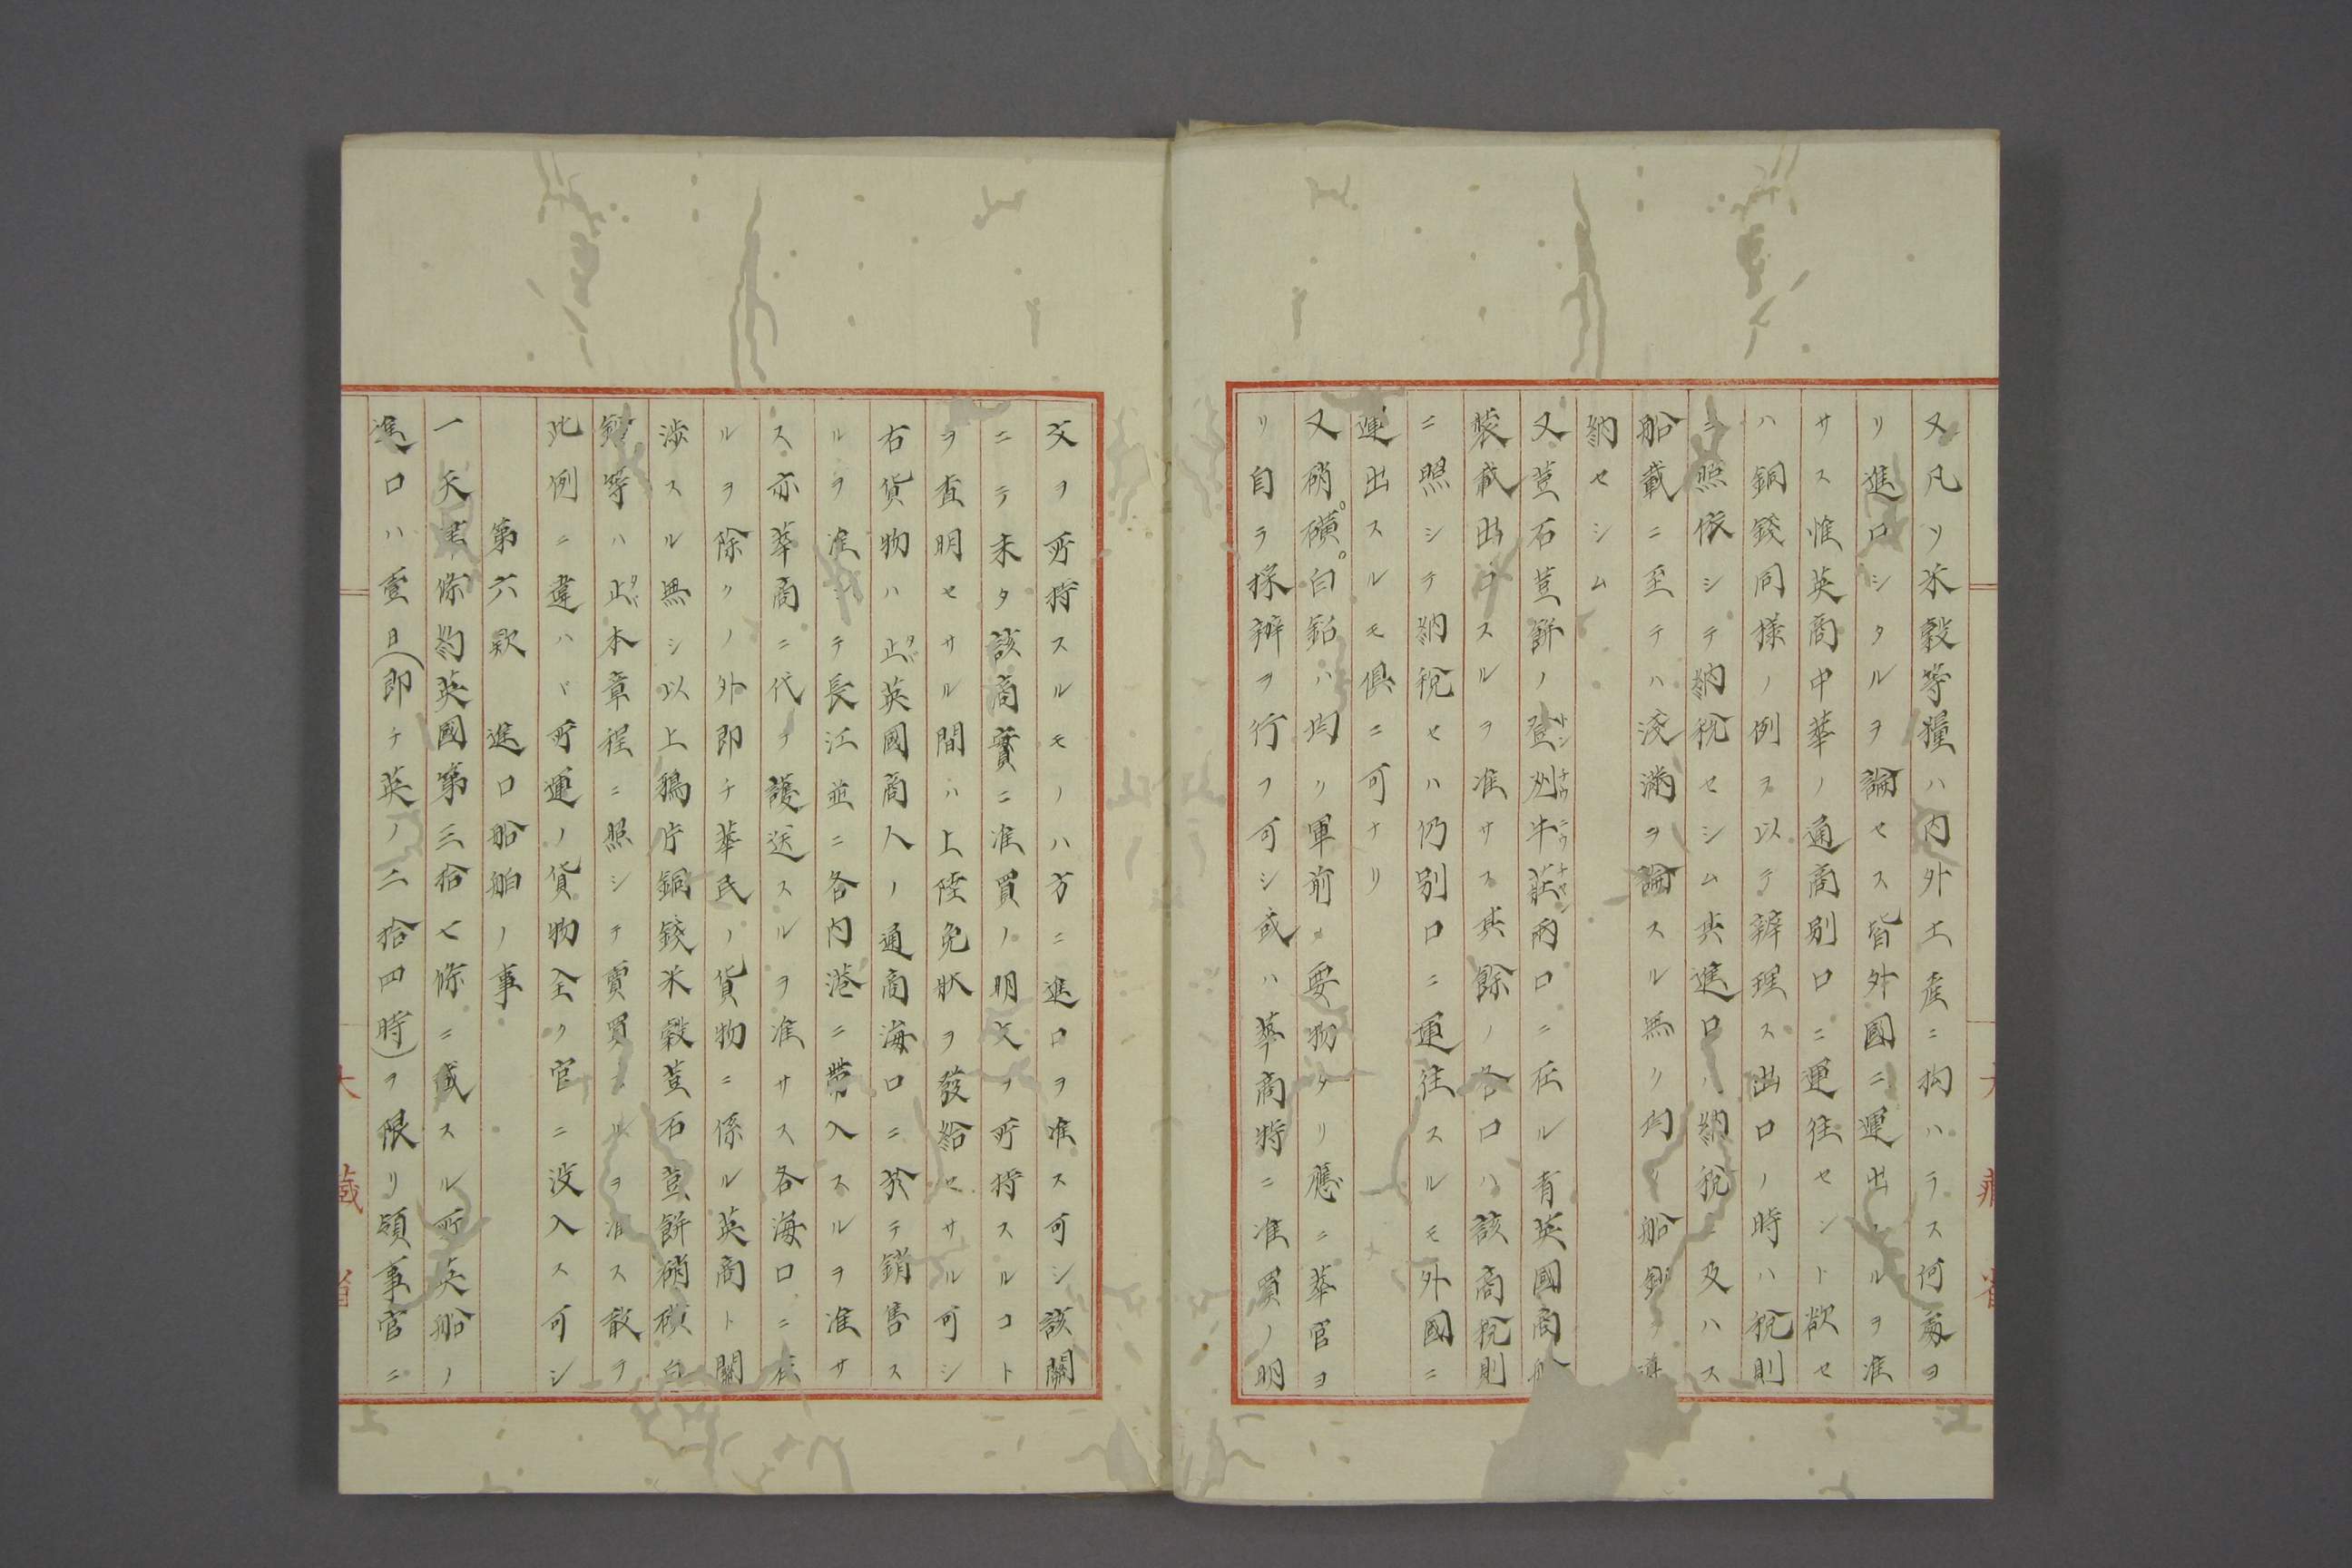 又凡ソ米穀等糧ハ内外土産ニ拘ハラス何處ヨ
リ進口シタルヲ論セス皆外國ニ運出スルヲ准
サス惟英商中華ノ通商別口ニ運往セント欲セ
ハ銅錢同様ノ例ヲ以テ辨理ス出口ノ時ハ税則
ニ照依シテ納税セシム其進口ハ納税ニ及ハス
船載ニ至テハ淺滿ヲ論スル無ク均シク船鈔ヲ
納セシム
又荳石荳餅ノ登州牛莊兩口ニ在ル者英國商
装載出口スルヲ准サス其餘ノ各口ハ該商税則
ニ照シテ納税セハ仍別口ニ運往スルモ外國ニ
運出スルモ倶ニ可ナリ
又硝磺白鉛ハ均シク軍前ノ要物タリ應ニ華官ヨ
リ自ラ採辨ヲ行フ可シ或ハ華商特ニ准買ノ明
文ヲ所持スルモノハ方ニ進口ヲ准ス可シ該關
ニテ未タ該商實ニ准買ノ明文ヲ所持スルコト
ヲ査明セサル間ハ上陸免狀ヲ發給セサル可シ
右貨物ハ止英國商人ノ通商海口ニ於テ銷售ス
ルヲ准シテ長江並ニ各内港ニ帶入スルヲ准サ
ス亦華商ニ代テ護送スルヲ准サス各海口ニ在
ルヲ除クノ外即チ華民ノ貨物ニ係ル英商ト關
渉スル無シ以上鴉片銅錢米穀荳石荳餅硝磺白
鉛等ハ止本章程ニ照シテ賣買スルヲ准ス敢テ
此例ニ違ハヾ所運ノ貨物全ク官ニ没入ス可シ
第六款　進口船舶ノ事
一天津條約英國第三拾七條ニ載スル所英船ノ
進口ハ壹日(即チ英ノ二拾四時)ヲ限リ領事官ニ